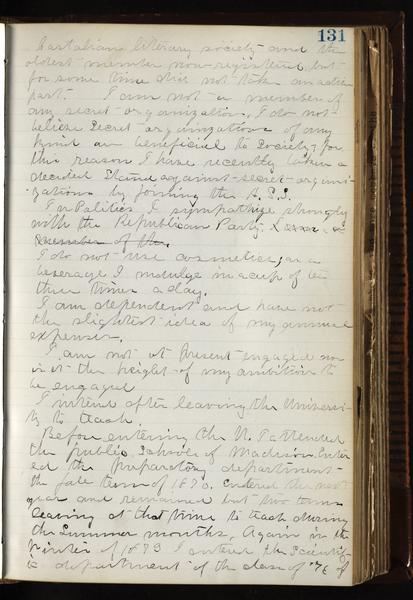 131
Castalian literary society and the
oldest member now registered but
for some time did not take an active
part. I am not a member of
any secret organization, I do not
believe Secret organizations of any
kind are beneficial to Society; for
this reason I have recently taken a
decided Stand against secret organi-
zations by joining the A.S.S.
In Politics I sympathize strongly
with the Republican Party.
member of the.
I do not use cosmetics; as a
beverage I indulge in a cup of tea
three times a day.
I am dependent and have not
the slightest idea of my annual
expenses.
I am not at Present engaged nor
is it the height of my ambition to
be engaged
I intend after leaving the Universi-
ty to teach.
Before entering the U. I attended
the public Schools of Madison. Enter
ed the preparatory department
the fall term of 1870. Entered the next
year and remained but two terms
leaving at that time to teach during
the Summer months, Again in the
Winter of 1873 I entered the Scientif-
ic department of the class of '76 of